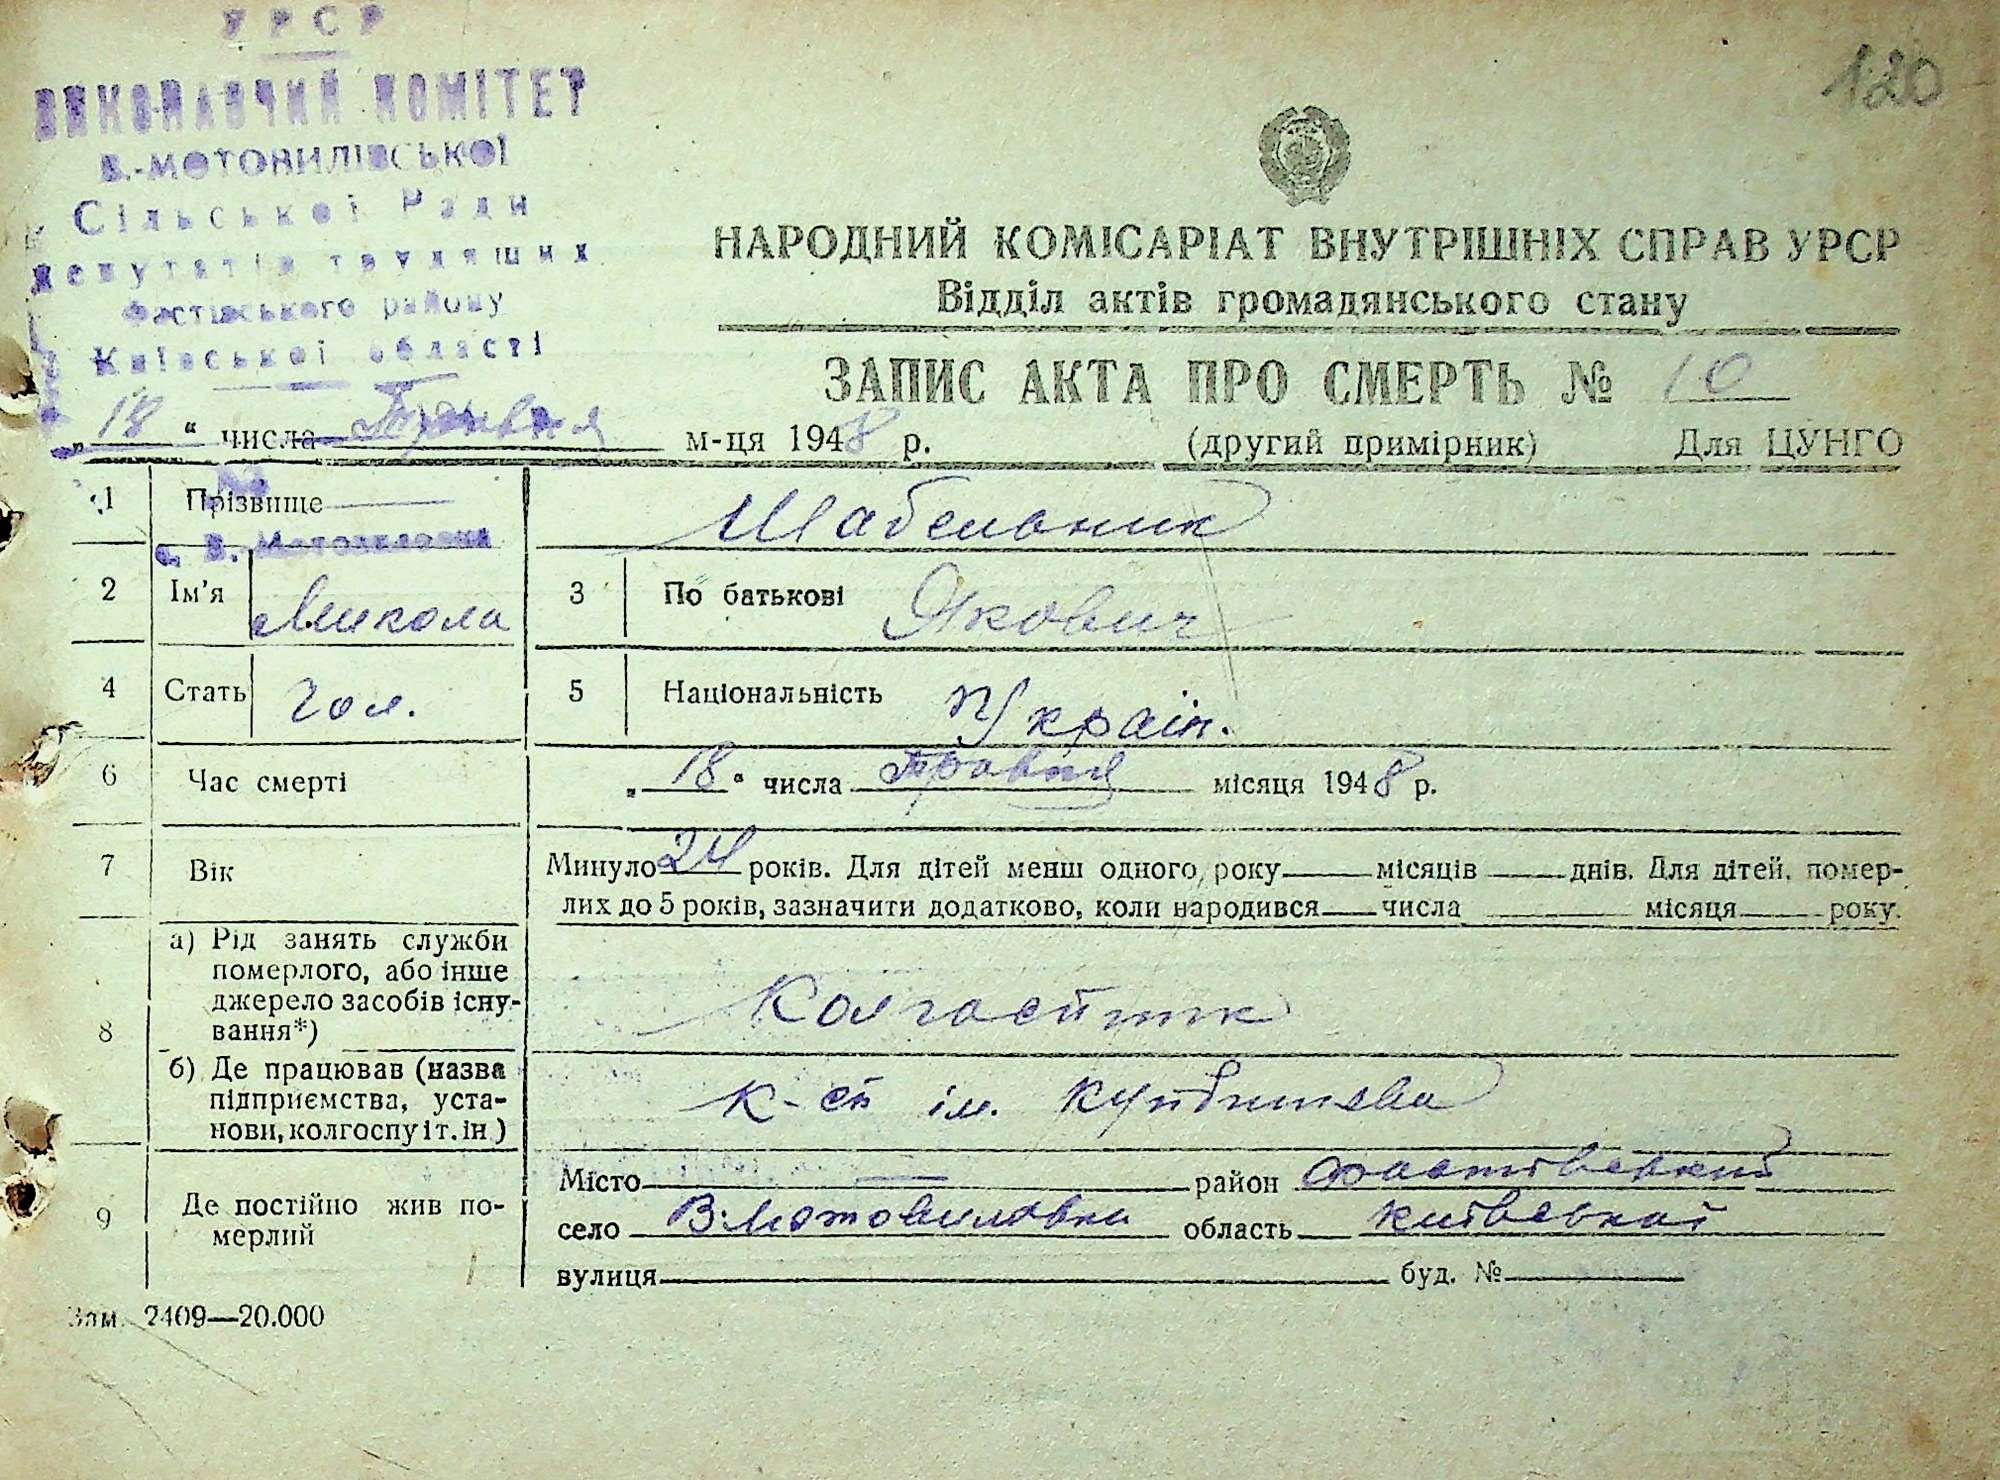 УРСР
ВИКОНАВЧИЙ КОМІТЕТ
В.-МОТОВИЛІВСЬКОЇ
Сільської Ради
депутатів трудящих
Фастівського району
Київської області
120
НАРОДНИЙ КОМІСАРІАТ ВНУТРІШНІХ СПРАВ УРСР
Відділ актів громадянського стану
ЗАПИС АКТА ПРО СМЕРТЬ № 10
„18“ числа Травня м-ця 1948 р. (другий примірник) Для ЦУНГО
1 Прізвище Шабельник
с. В. Мотовиловка
2 Ім'я Микола 3 По батькові Якович
4 Стать Чол. 5 Національність Україн.
6 Час смерті „18“ числа Травня місяця 1948 р.
7 Вік Минуло 24 років. Для дітей менш одного року місяців днів. Для дітей, помер-
лих до 5 років, зазначити додатково, коли народився числа місяця року.
8 а) Рід занять служби
померлого, або інше
джерело засобів існу-
вання*) Колгоспник
б) Де працював (назва
підприємства, уста-
нови, колгоспу і т. ін.) к-сп ім. Куйбишева
9 Де постійно жив по-
мерлий
Місто — район Фастівський
село В. Мотовиловка область Київської
вулиця буд. №
Зам. 2409—20.000